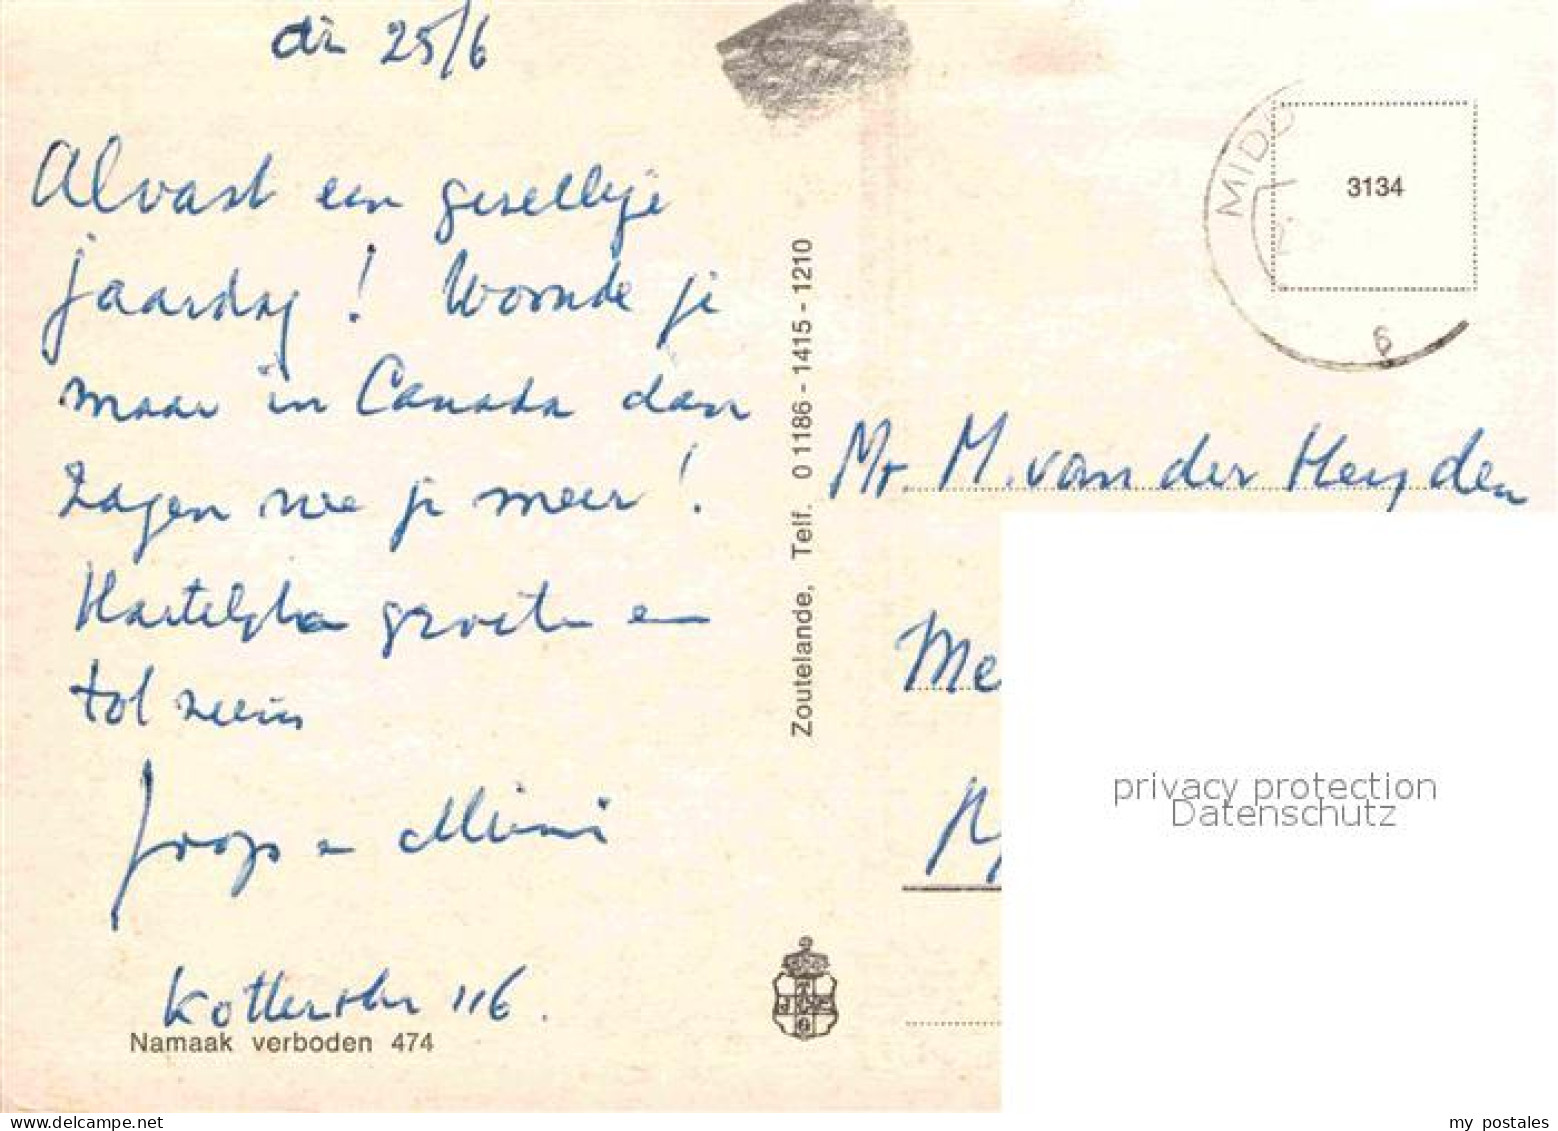 di 25/6
Alvast een gezellige
jaardag! Woonde je
maar in Canada dan
zagen we je meer!
Hartelijke groeten en
tot ziens
Joop en Mimi
116.
Namaak verboden 474
Zoutelande, Telf. 01186-1415-1210
MIDD
3134
6
Mr. M. van der Heyden
Me
privacy protection
Datenschutz
my postales